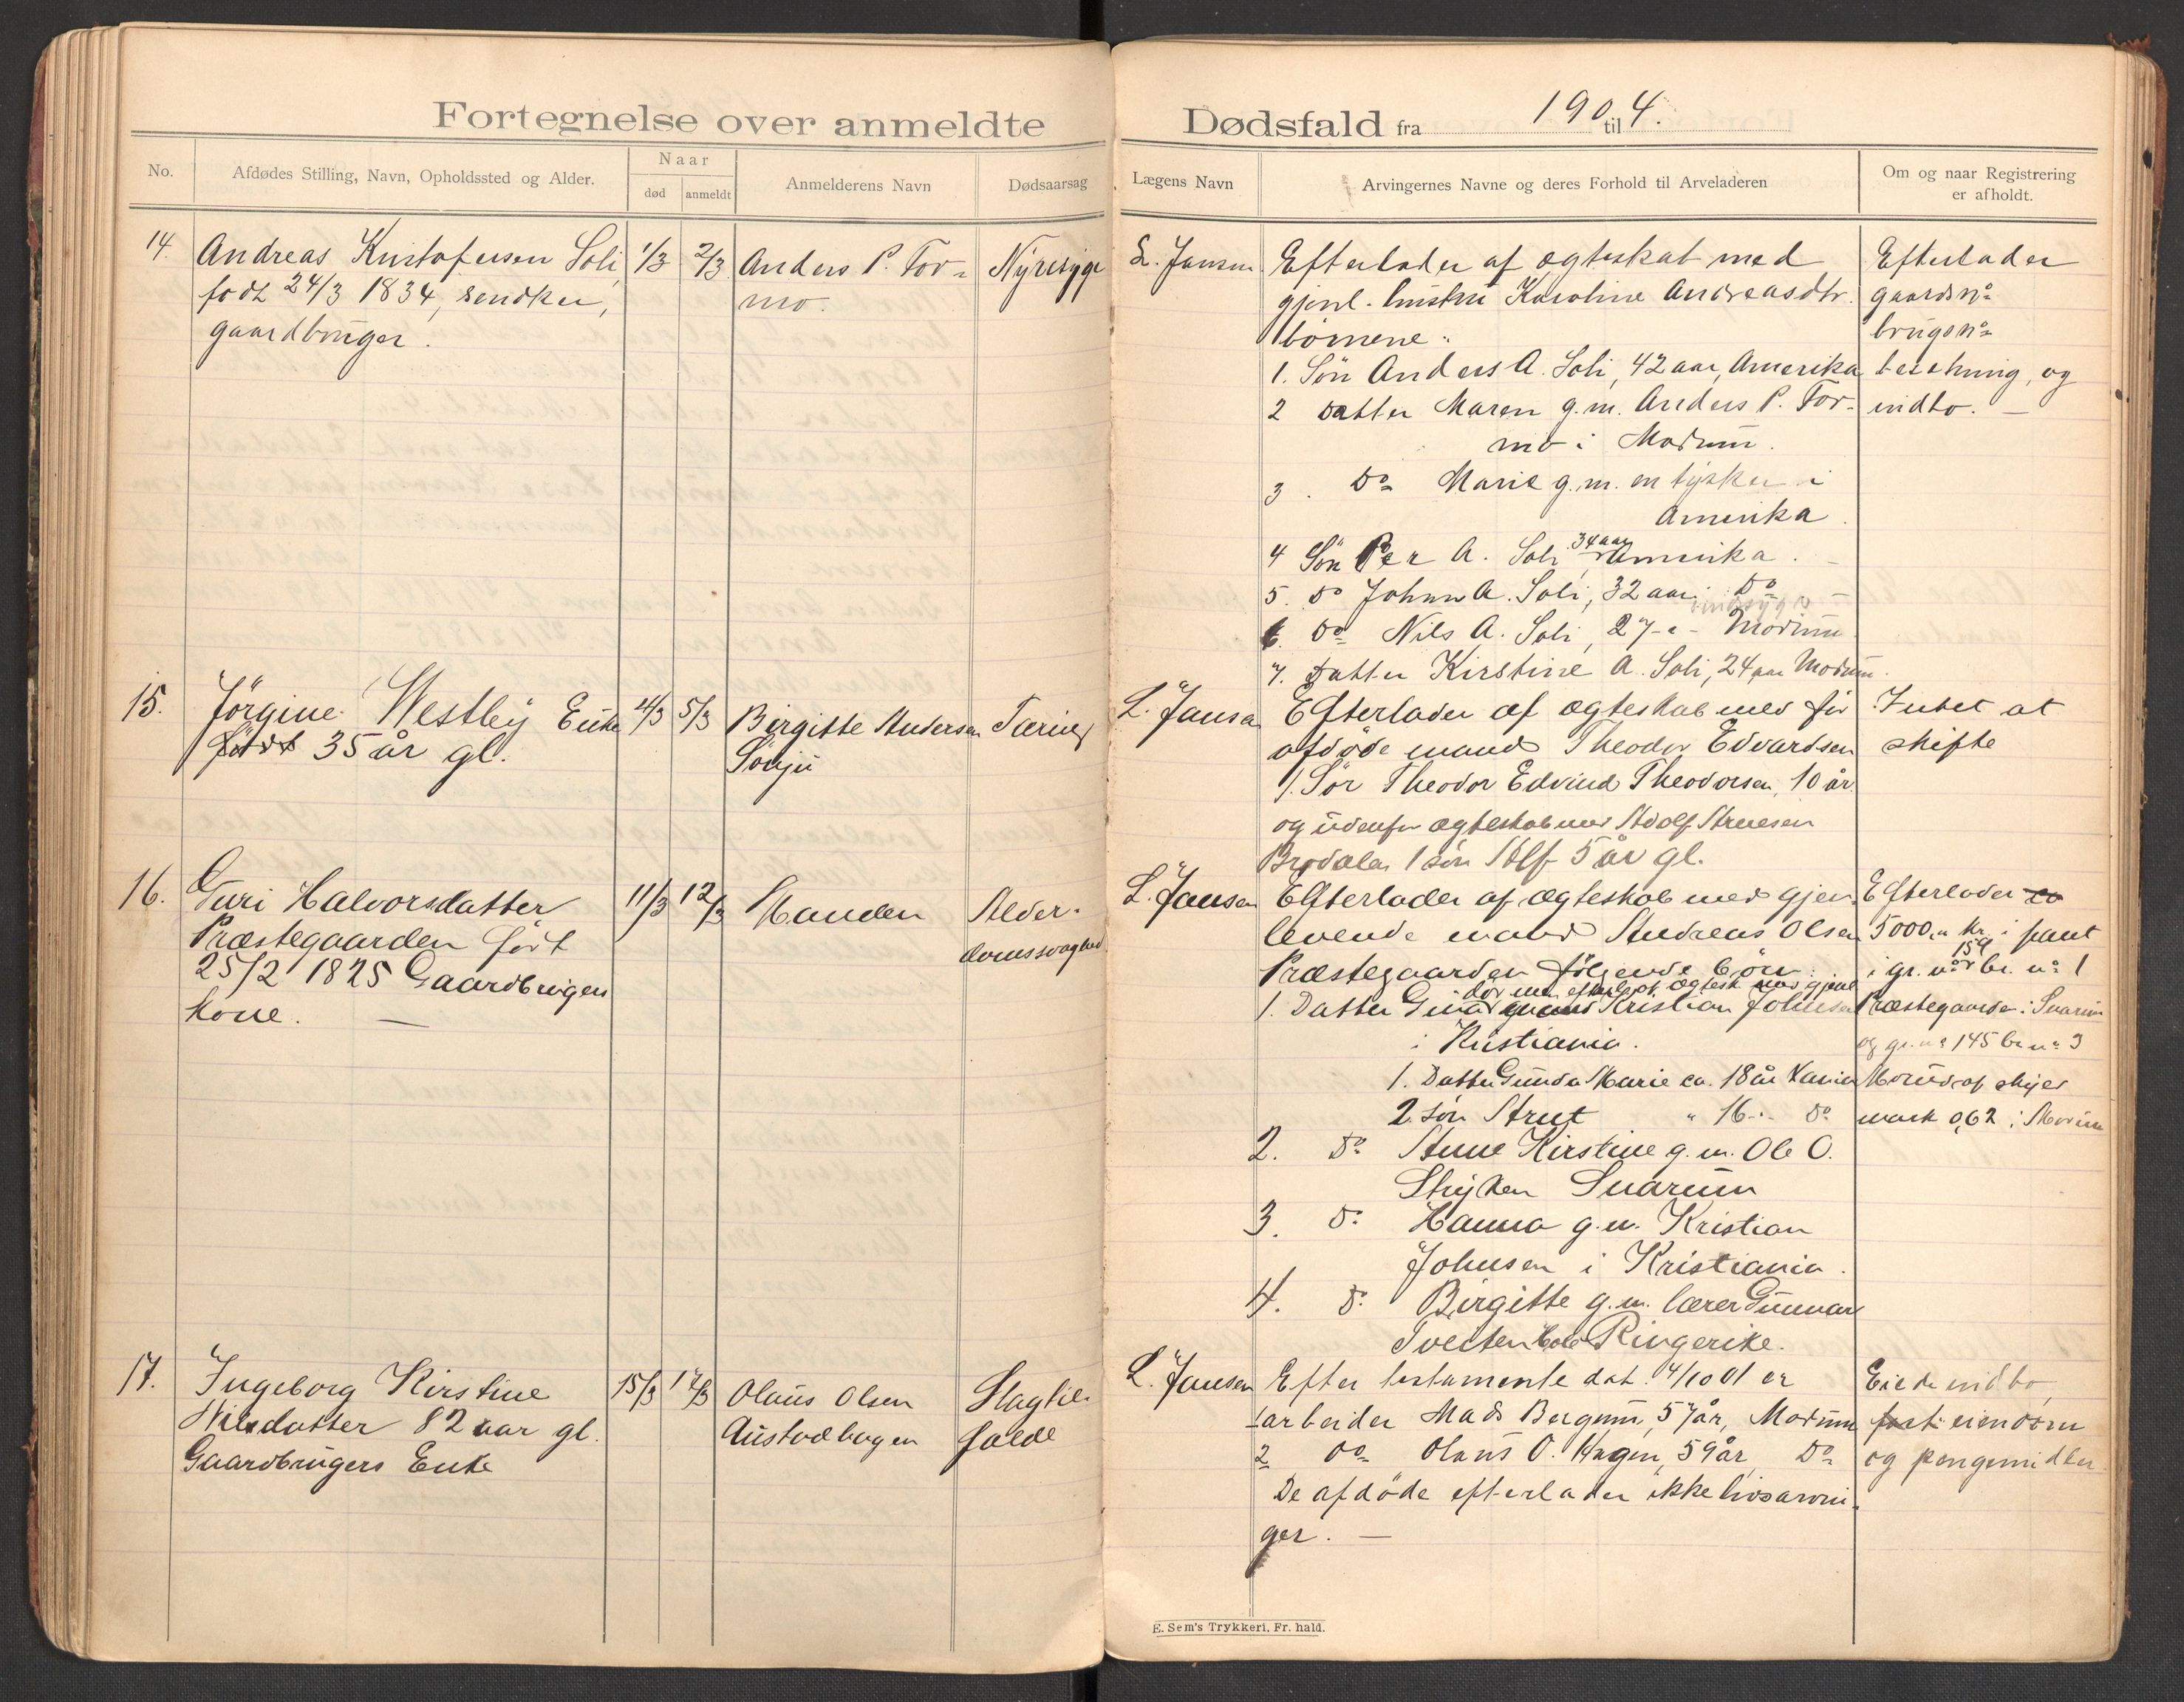 Fortegnelse over anmeldte Dødsfald fra 1904. til
No.
Afdødes Stilling, Navn, Opholdssted og Alder.
Naar
død anmeldt
Anmelderens Navn
Dødsaarsag
Lægens Navn
Arvingernes Navne og deres Forhold til Arveladeren
Om og naar Registrering
er afholdt.
14. Andreas Kristofersen Soli,
født 24/3 1834,
gaardbruger.
1/3 2/3
Anders P. For-
mo.
Nyresyge
L. Jansen
Efterlader af ægteskab med
gjenl. hustru Karoline Andreasdtr.
børnene:
1. Søn Anders A. Soli, 42 aar, Amerika
2 Datter Maren g.m. Anders P. For-
mo i Modum.
3. Do Marie g.m. en tysker i
Amerika.
4 Søn Per A. Soli, 34 aar Amerika.
5. Do Johan A. Soli, 32 aar Do
6. Do Nils A. Soli, 27 -"- Modum
7. Datter Kirstine A. Soli, 24 aar Modum.
Efterlader
gaardsno
brugsno
besetning, og
indbo. —
15. Jørgine Westby Enke
født 35 år gl.
4/3 5/3
Birgitte Andersen
Sønju
Tæring
L. Jansen
Efterlader af ægteskab med før
afdøde mand Theodor Edvardsen
1. Søn Theodor Edvind Theodorsen, 10 år.
og udenfor ægteskab med Adolf
1 søn Alf 5 år gl.
Intet at
skifte
16. Guri Halvorsdatter
Præstegaarden født
25/2 1825 Gaardbruger
kone. —
11/3 12/3
Manden
Alder-
domssvaghed
L. Jansen
Efterlader af ægteskab med gjen-
levende mand Andreas Olsen
Præstegaarden følgende børn:
død men efterl. af ægtesk. med gjenl
1. Datter Kristian Johnsen
i Kristiania.
1. Datter Gunda Marie ca. 18 år Kania
2. søn " 16 -"- Do
2. Do Anne Kirstine g.m. Ole O.
Stryken Snarum
3. Do Hanna g.m. Kristian
Johnsen i Kristiania.
4. Do Birgitte g.m. lærer Gunnar
Tveiten Hole Ringerike.
Efterlader
5000 kr. i pant
i gr. no 159 br. no 1
Præstegaarden i Snarum
og gr. no 145 br no 3
af skyld
mark 0,62 i Modum
17. Ingeborg Kirstine
Nilsdatter 82 aar gl.
Gaardbrugers Enke
15/3 17/3
Olaus Olsen
Austadhagen
Slagtil-
fælde
L. Jansen
Efter testamente dat. 4/10 01 er
1 arbeider Mads Bergum, 57 år, Modum
2 Do Olaus O. Hagen, 59 år, Do
De afdøde efterlader ikke livsarvin-
ger. —
Eiede indbo,
fast eiendom
og pengemidler
E. Sem's Trykkeri, Fr. hald.